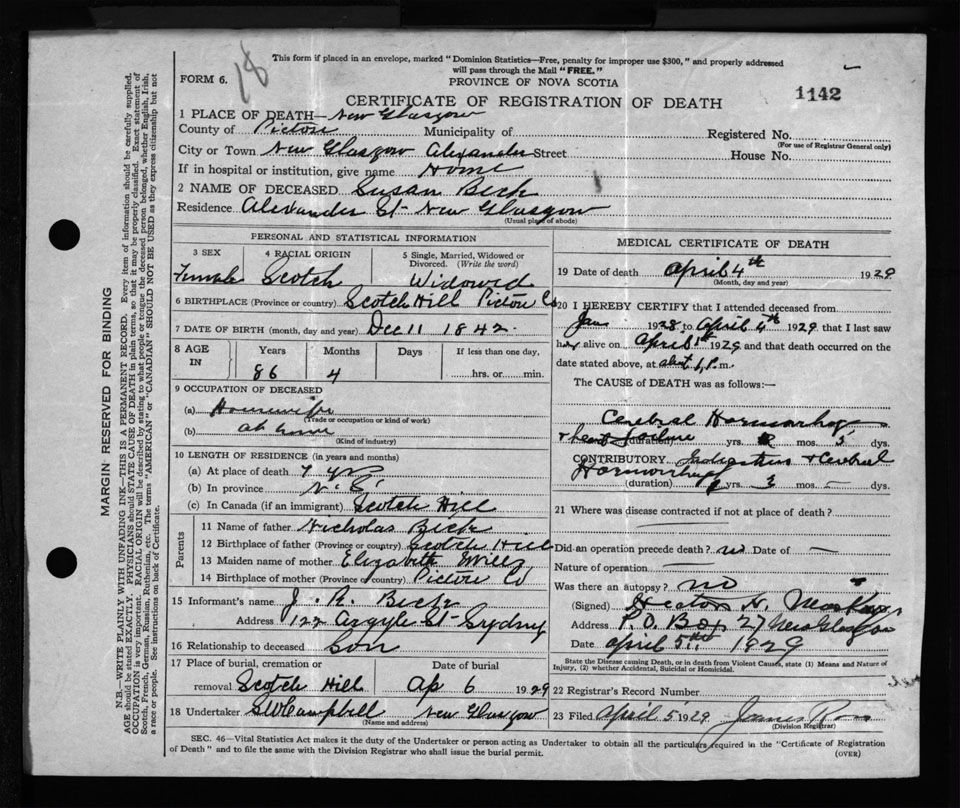 18
This form if placed in an envelope, marked "Dominion Statistics—Free, penalty for improper use $300," and properly addressed
will pass through the Mail "FREE."
FORM 6.
PROVINCE OF NOVA SCOTIA
CERTIFICATE OF REGISTRATION OF DEATH
1142
1 PLACE OF DEATH— New Glasgow
County of Pictou Municipality of Registered No.
(For use of Registrar General only)
City or Town New Glasgow Alexander Street House No.
If in hospital or institution, give name Home
2 NAME OF DECEASED Susan Beck
Residence Alexander St- New Glasgow
(Usual place of abode)
PERSONAL AND STATISTICAL INFORMATION
3 SEX 4 RACIAL ORIGIN 5 Single, Married, Widowed or Divorced. (Write the word)
Female Scotch Widowed
6 BIRTHPLACE (Province or country) Scotch Hill Pictou Co
7 DATE OF BIRTH (month, day and year) Dec 11 1842.
8 AGE IN Years Months Days If less than one day,
86 4 hrs. or min.
9 OCCUPATION OF DECEASED
(a) Housewife
(Trade or occupation or kind of work)
(b) at home
(Kind of industry)
10 LENGTH OF RESIDENCE (in years and months)
(a) At place of death 7 yrs
(b) In province N.S.
(c) In Canada (if an immigrant) Scotch Hill
Parents
11 Name of father Nicholas Beck
12 Birthplace of father (Province or country) Scotch Hill
13 Maiden name of mother Elizabeth
14 Birthplace of mother (Province or country) Pictou Co
15 Informant's name J. R. Beck
Address 122 Argyle St- Sydney
16 Relationship to deceased Son
17 Place of burial, cremation or Date of burial
removal Scotch Hill Ap 6 1929
18 Undertaker SW Campbell New Glasgow
(Name and address)
MEDICAL CERTIFICATE OF DEATH
19 Date of death April 4th 1929
(Month, day and year)
20 I HEREBY CERTIFY that I attended deceased from
Jan 1928 to April 4th 1929 that I last saw
her alive on April 1st 1929 and that death occurred on the
date stated above, at abt 1 P.m.
The CAUSE of DEATH was as follows:—
Cerebral Hormorrhage
& heart failure (duration) yrs. mos. 5 dys.
CONTRIBUTORY & Cerebral
Hormorrhage
(duration) yrs. 3 mos. — dys.
21 Where was disease contracted if not at place of death?
Did an operation precede death? no Date of —
Nature of operation —
Was there an autopsy? no
(Signed) Heaton H.
Address P.O. Box 27 New Glasgow
Date April 5th 1929
State the Disease causing Death, or in death from Violent Causes, state (1) Means and Nature of
Injury, (2) whether Accidental, Suicidal or Homicidal.
22 Registrar's Record Number
23 Filed April 5 1929 James
(Division Registrar)
SEC. 46—Vital Statistics Act makes it the duty of the Undertaker or person acting as Undertaker to obtain all the particulars required in the "Certificate of Registration
of Death" and to file the same with the Division Registrar who shall issue the burial permit.
(OVER)
MARGIN RESERVED FOR BINDING
N.B.—WRITE PLAINLY WITH UNFADING INK—THIS IS A PERMANENT RECORD. Every item of information should be carefully supplied.
AGE should be stated EXACTLY. PHYSICIANS should STATE CAUSE OF DEATH in plain terms, so that it may be properly classified. Exact statement of
OCCUPATION is very important. RACIAL ORIGIN will be described by stating to what people or tongue the deceased person belonged, whether English, Irish,
Scotch, French, German, Russian, Ruthenian, etc. The terms "AMERICAN" or "CANADIAN" SHOULD NOT BE USED as they express citizenship but not
a race or people. See instructions on back of Certificate.